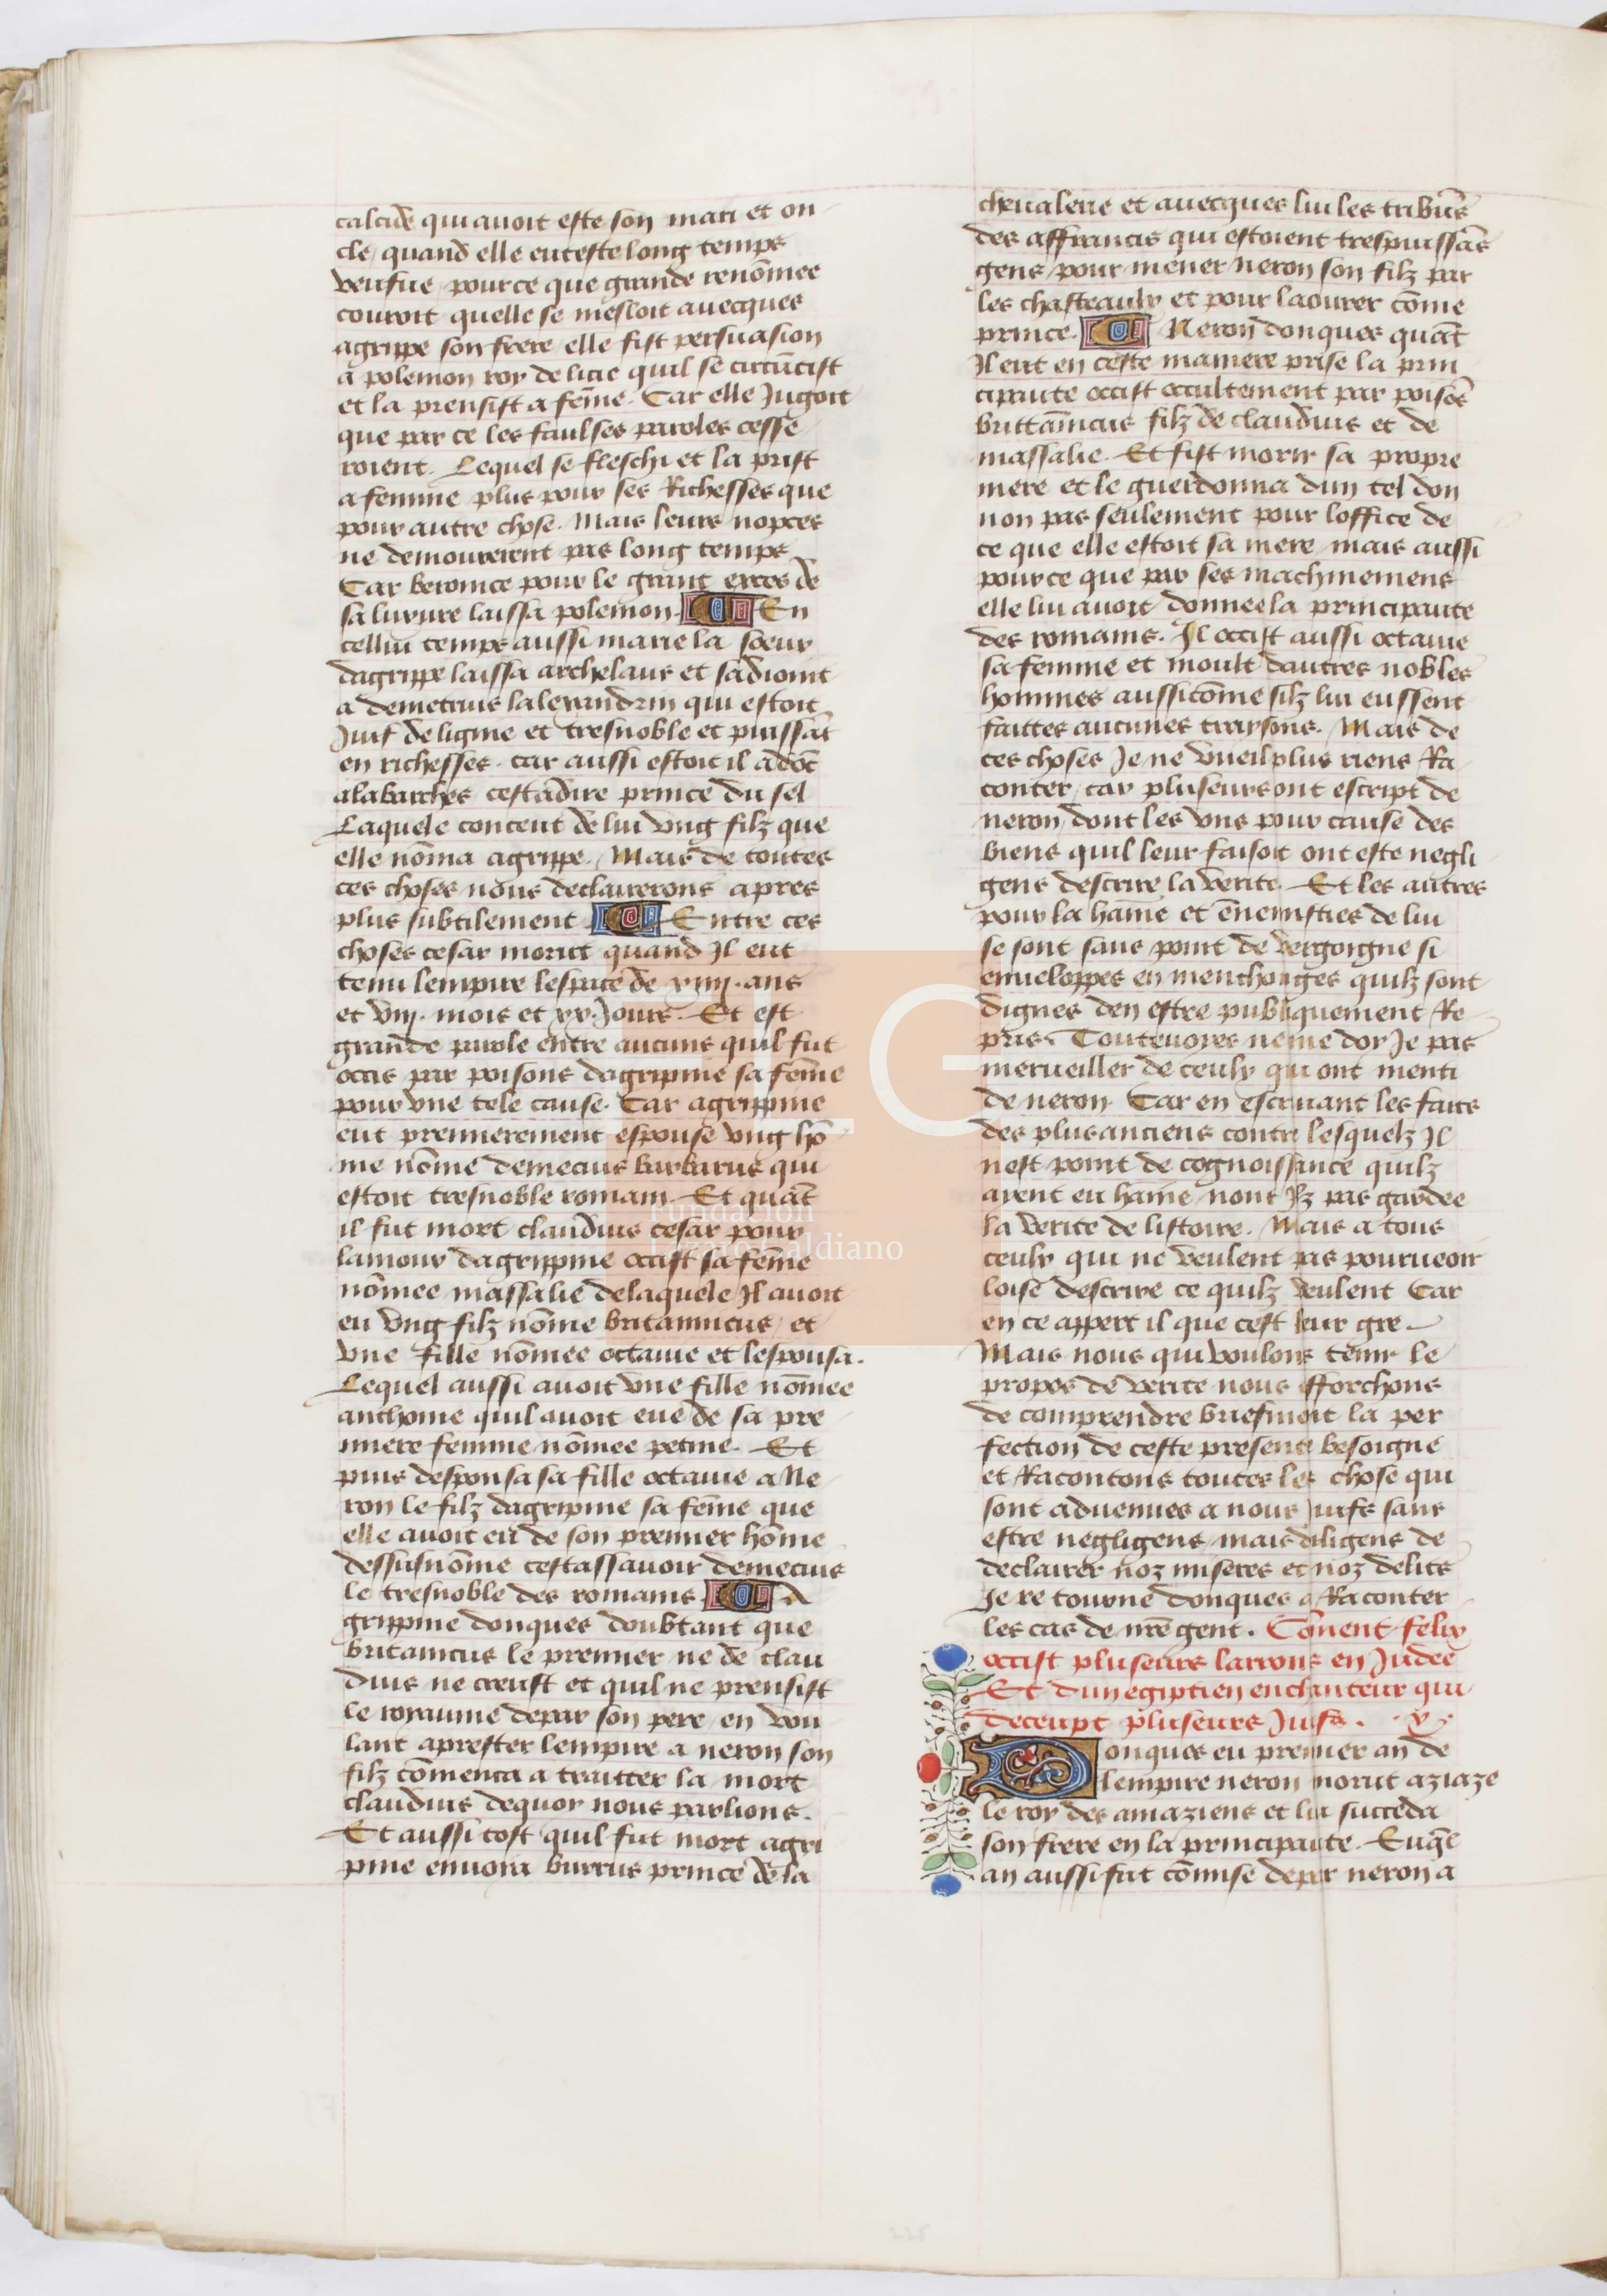 calcide qui auoit este son mari et on
cle / quand elle eut este long temps
veufue / pour ce que grande renōmee
couroit quelle se mesloit auecques
agrippe son frere / elle fist persuasion
a polemon roy de licie quil se circūcist
et la prensist a fēme. Car elle Jugoit
que par ce les faulses paroles cesse
roient. Lequel se fleschi et la prist
a femme plus pour ses Richesses que
pour autre chose. Mais leurs nopces
ne demourerent pas long temps
Car beronice pour le grant exces de
sa luxure laissa polemon. En
cellui temps aussi marie la soeur
dagrippe laissa archelaus et sadioint
a demetrius lalexandrin qui estoit
Juif de ligne et tresnoble et puissāt
en richesses. car aussi estoit il adōc
alabarches / cestadire prince du sel
Laquele conceut de lui vng filz que
elle nōma agrippe. Mais de toutes
ces choses nous declairerons apres
plus subtilement Entre ces
choses cesar morut quand Jl eut
tenu lempire lespace de xiiij. ans
et viij. mois et xx. Jours. Et est
grande parole entre aucuns quil fut
occis par poisons dagripine sa fēme
pour vne tele cause. Car agrippine
eut premierement espouse vng hō
me nōme demecius barbarus qui
estoit tresnoble romain. Et quāt
il fut mort claudius cesar pour
lamour dagrippine occist sa fēme
nōmee massalie delaquele Jl auoit
eu vng filz nōme britannicus / et
vne fille nōmee octauie et lespousa.
Lequel aussi auoit vne fille nōmee
anthonie quil auoit eue de sa pre
miere femme nōmee petine. Et
puis desponsa sa fille octauie a Ne
ron le filz dagripine sa fēme que
elle auoit eu de son premier hōme
dessusnōme cestassauoir demecius
le tresnoble des romains A
grippine donques doubtant que
britanicus le premier ne de clau
dius ne creust et quil ne prensist
le royaume depar son pere / en vou
lant aprester lempire a neron son
filz cōmenca a traitter la mort
claudius dequoy nous parlions.
Et aussi tost quil fut mort agri
pine enuoia burrus prince de la
cheualerie et auecques lui les tribūs
des affrancis qui estoient trespuissās
gens / pour mener neron son filz par
les chasteaulx et pour laourer cōme
prince. Neron donques quāt
Jl eut en ceste maniere prise la prin
cipaute occist occultement par poisōs
brittānicus filz de claudius et de
massalie. Et fist morir sa propre
mere et le guerdonna dun tel don
non pas seulement pour loffice de
ce que elle estoit sa mere / mais aussi
pour ce que par ses machinemens
elle lui auoit donnee la principaute
des romains. Jl occist aussi octauie
sa femme et moult dautres nobles
hommes aussi cōme silz lui eussent
faittes aucunes traysons. Mais de
ces choses Je ne vueil plus riens Ra
conter / car pluseurs ont escript de
neron / dont les vns pour cause des
biens quil leur faisoit ont este negli
gens descrire la verite. Et les autres
pour la hāine et ēnemisties de lui
se sont sans point de vergoigne si
enueloppes en menchonges quilz sont
dignes den estre publiquement Re
pris. Touteuoyes ne me doy Je pas
merueiller de ceulx qui ont menti
de neron. Car en escriuant les fais
des plus anciens contre lesquelz Jl
nest point de cognoissance quilz
ayent eu haine / nont Jlz pas gardee
la verite de listoire. Mais a tous
ceulx qui ne veulent pas pourueoir
loise descrire ce quilz veulent Car
en ce appert il que cest leur gre
Mais nous qui voulons tenir le
propos de verite nous efforchons
de comprendre briefment la per
fection de ceste presente besoigne
et Racontons toutes les chose qui
sont aduenues a nous Juifs sans
estre negligens / mais diligens de
declairer noz miseres et noz delits
Je re tourne donques a Raconter
les cas de nr̄e gent. Cōment felix
occist pluseurs larrons en Judee
Et dun egiptien enchanteur qui
deceupt pluseurs Juifs. .x.
Donques eu premier an de
lempire neron morut aziaze
le roy des amaziens et lui succeda
son frere en la principaute. Eugē
an aussi fut cōmise depar neron a
Fundación
Lázaro Galdiano